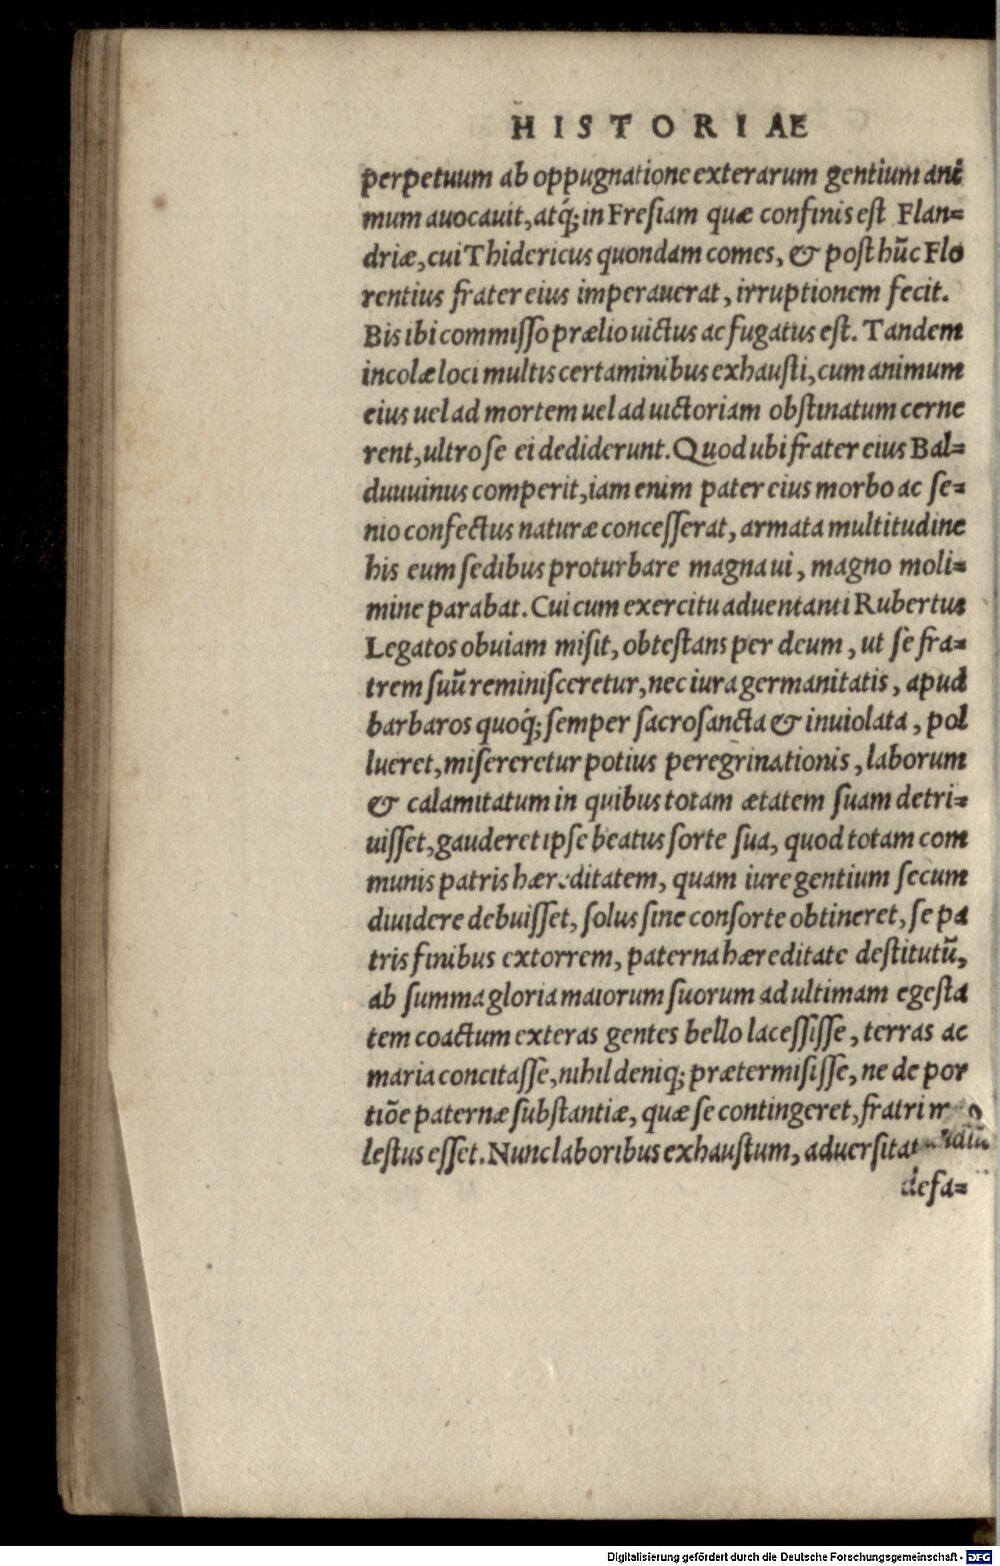 HISTORIAE
perpetuum ab oppugnatione exterarum gentium ani
mum auocauit, atq́; in Fresiam quæ confinis est Flan=
driæ, cui Thidericus quondam comes, & post hūc Flo
rentius frater eius imperauerat, irruptionem fecit.
Bis ibi commisso prælio uictus ac fugatus est. Tandem
incolæ loci multis certaminibus exhausti, cum animum
eius uel ad mortem uel ad uictoriam obstinatum cerne
rent, ultro se ei dediderunt. Quod ubi frater eius Bal=
duuuinus comperit, iam enim pater eius morbo ac se=
nio confectus naturæ concesserat, armata multitudine
his eum sedibus proturbare magna ui, magno moli=
mine parabat. Cui cum exercitu aduentanti Rubertus
Legatos obuiam misit, obtestans per deum, ut se fra=
trem suū reminisceretur, nec iura germanitatis, apud
barbaros quoq́; semper sacrosancta & inuiolata, pol
lueret, misereretur potius peregrinationis, laborum
& calamitatum in quibus totam ætatem suam detri=
uisset, gauderet ipse beatus sorte sua, quod totam com
munis patris hæreditatem, quam iure gentium secum
diuidere debuisset, solus sine consorte obtineret, se pa
tris finibus extorrem, paterna hæreditate destitutū,
ab summa gloria maiorum suorum ad ultimam egesta
tem coactum exteras gentes bello lacessisse, terras ac
maria concitasse, nihil deniq; prætermisisse, ne de por
tiōe paternæ substantiæ, quæ se contingeret, fratri
lestus esset. Nunc laboribus exhaustum,
defa=
Digitalisierung gefördert durch die Deutsche Forschungsgemeinschaft - DFG